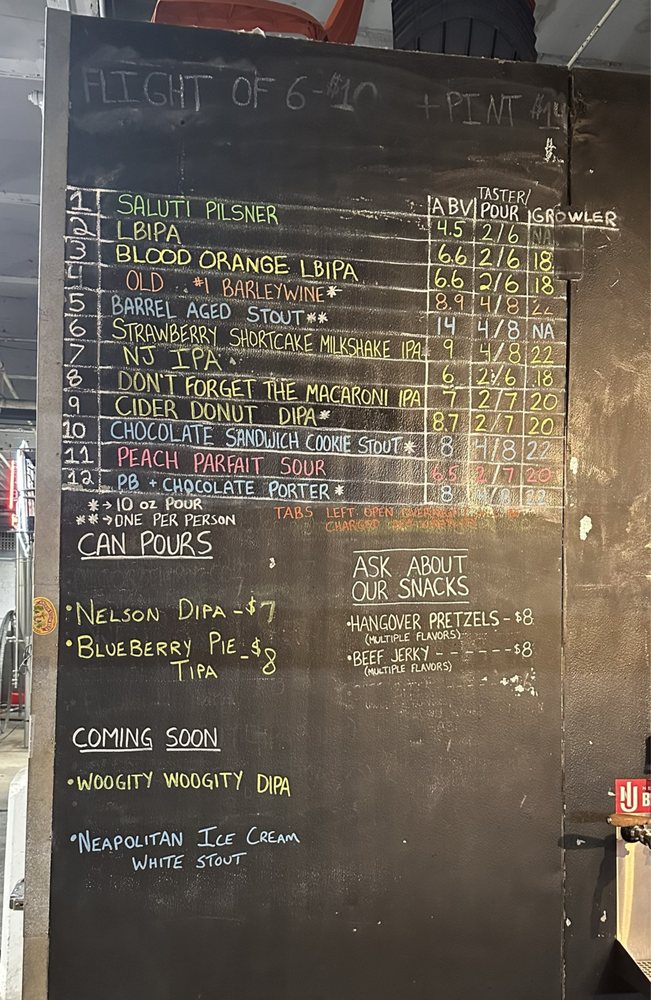 FLIGHT OF 6 - $10 + PINT $14
ABV TASTER/POUR GROWLER
1 SALUTI PILSNER 4.5 2/6 NA
2 LBIPA 6.6 2/6 18
3 BLOOD ORANGE LBIPA 6.6 2/6 18
4 OLD #1 BARLEYWINE* 8.9 4/8 22
5 BARREL AGED STOUT** 14 4/8 NA
6 STRAWBERRY SHORTCAKE MILKSHAKE IPA 9 4/8 22
7 NJ IPA 6 2/6 18
8 DON'T FORGET THE MACARONI IPA 7 2/7 20
9 CIDER DONUT DIPA* 8.7 2/7 20
10 CHOCOLATE SANDWICH COOKIE STOUT* 8 4/8 22
11 PEACH PARFAIT SOUR 6.5 2/7 20
12 PB + CHOCOLATE PORTER* 8 4/8 22
* → 10 oz POUR
** → ONE PER PERSON
TABS LEFT OPEN OVERNIGHT
CHARGED
CAN POURS
• NELSON DIPA - $7
• BLUEBERRY PIE - $8
TIPA
ASK ABOUT
OUR SNACKS
• HANGOVER PRETZELS - $8
(MULTIPLE FLAVORS)
• BEEF JERKY - - - - - - $8
(MULTIPLE FLAVORS)
COMING SOON
• WOOGITY WOOGITY DIPA
• NEAPOLITAN ICE CREAM
WHITE STOUT
NJ